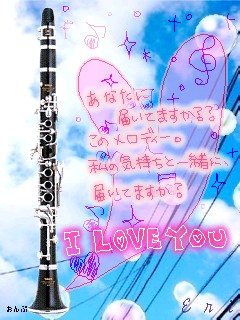 あなたに
届いてますかる?
このメロディー。
私の気持ちと一緒に、
届いてますか?
I LOVE YOU
おんぷ
Eri